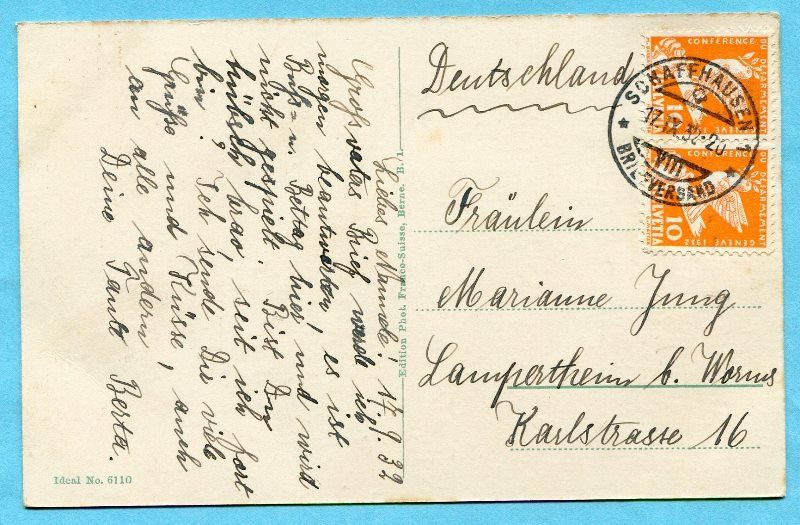 Liebes Nannele! 17.9.32
Großvatas Brief werde ich
morgen beantworten, es ist
Buß= u. Bettag hier und wird
nicht gespielt. Bist Du
hübsch brav, seit ich fort
bin? Ich sende Dir viele
Grüße und Küsse, auch
an alle andern
Deine Tante Berta.
Edition Phot. Franco-Suisse, Berne. B. I.
Ideal No. 6110
Deutschland
Fräulein
Marianne Jung
Lampertheim b. Worms
Karlstrasse 16
CONFERENCE
DU DESARMEMENT
HELVETIA
10
SCHAFFHAUSEN 1
17.IX.32-20
VIII
BRIEFVERSAND
DU DESARMEMENT
GENEVE 1932
HELVETIA
10